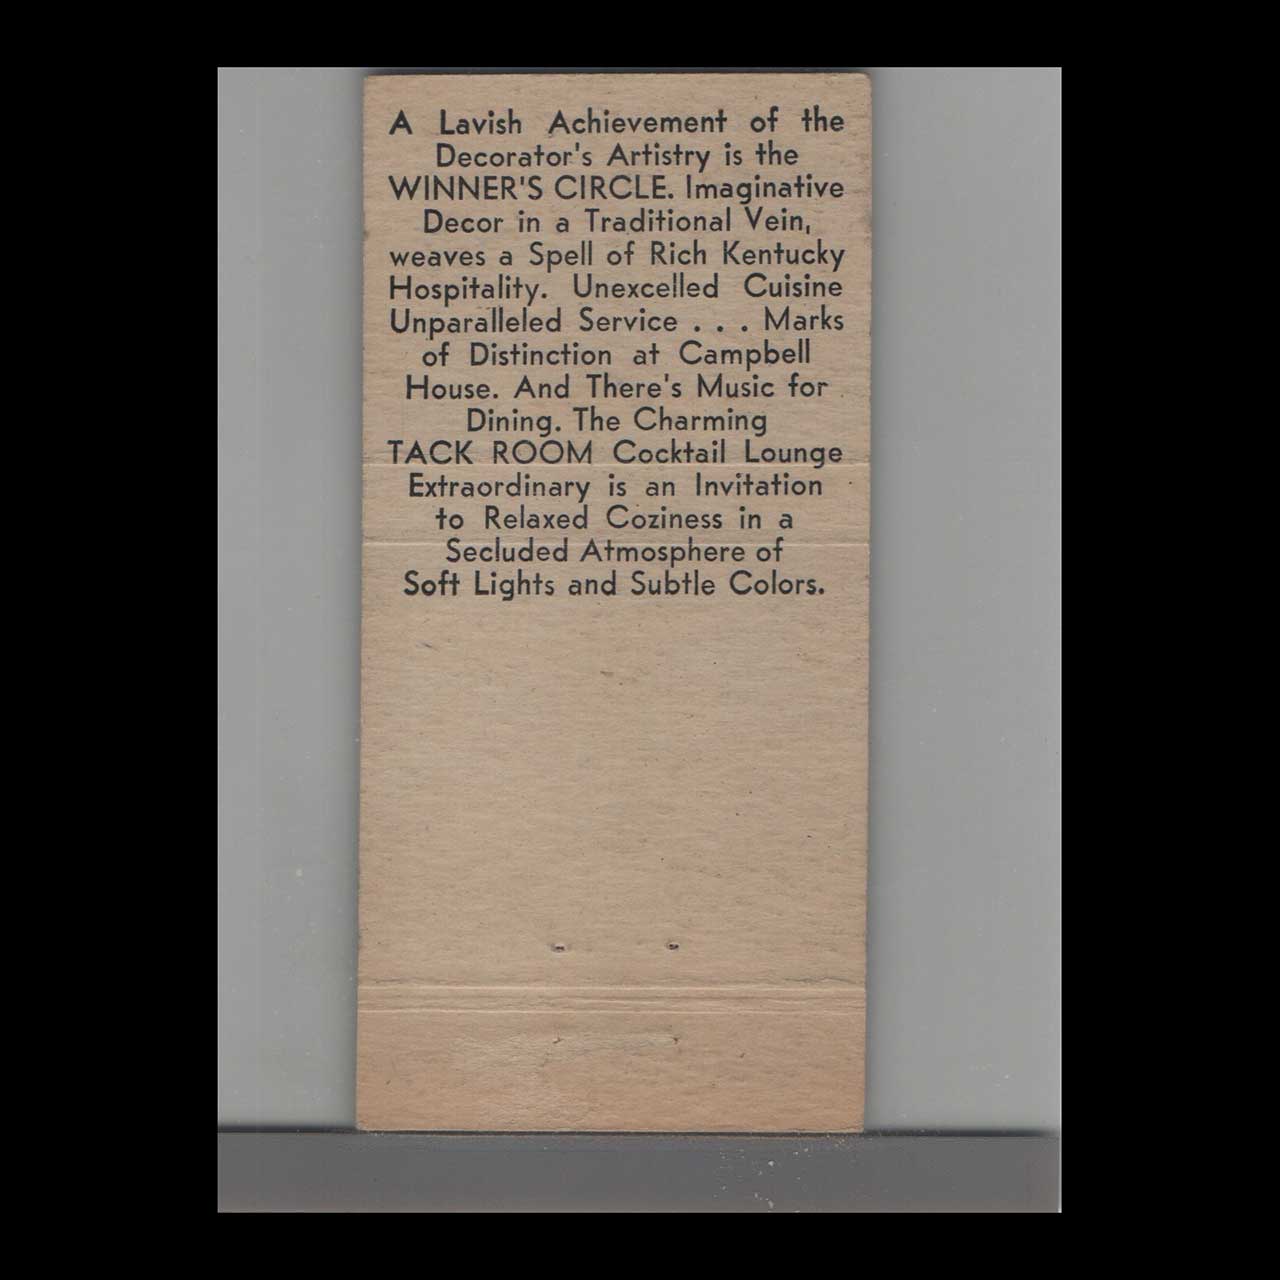 A Lavish Achievement of the
Decorator's Artistry is the
WINNER'S CIRCLE. Imaginative
Decor in a Traditional Vein,
weaves a Spell of Rich Kentucky
Hospitality. Unexcelled Cuisine
Unparalleled Service . . . Marks
of Distinction at Campbell
House. And There's Music for
Dining. The Charming
TACK ROOM Cocktail Lounge
Extraordinary is an Invitation
to Relaxed Coziness in a
Secluded Atmosphere of
Soft Lights and Subtle Colors.